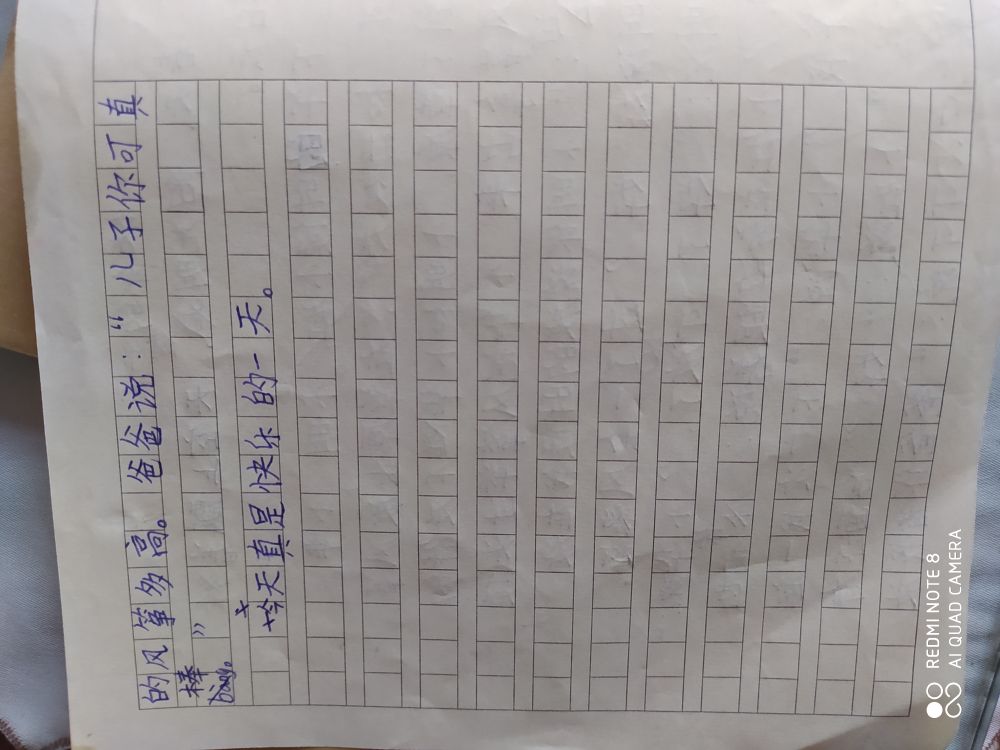 的风筝多高。爸爸说：“儿子你可真
棒”
bàng。
今天真是快乐的一天。
REDMI NOTE 8
AI QUAD CAMERA